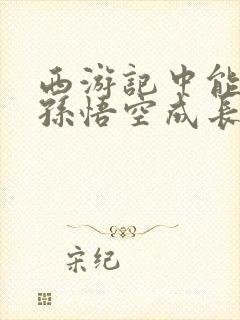 西游記中能
孫悟空成長
宋纪